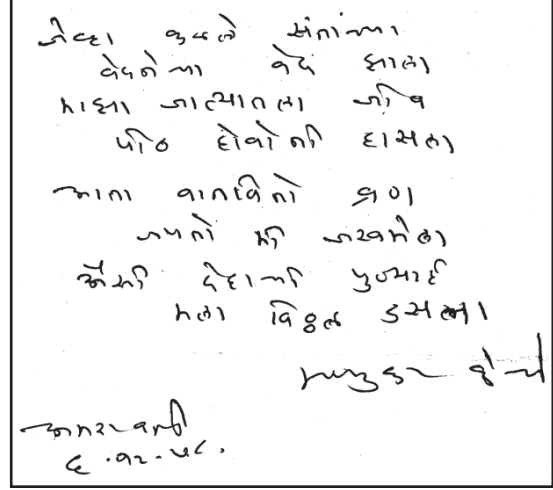 जेव्हा कळले संतांच्या
वेदनेचा वेद झाला
माझा जात्यातला जीव
पीठ होवोनी हासला
आता वागवितो व्रण
जपतो मी जखमेला
ऐसी देहाची पुण्याई
मला विठ्ठल डसला
मधुकर केचे
अमरावती
६.१२.५८.